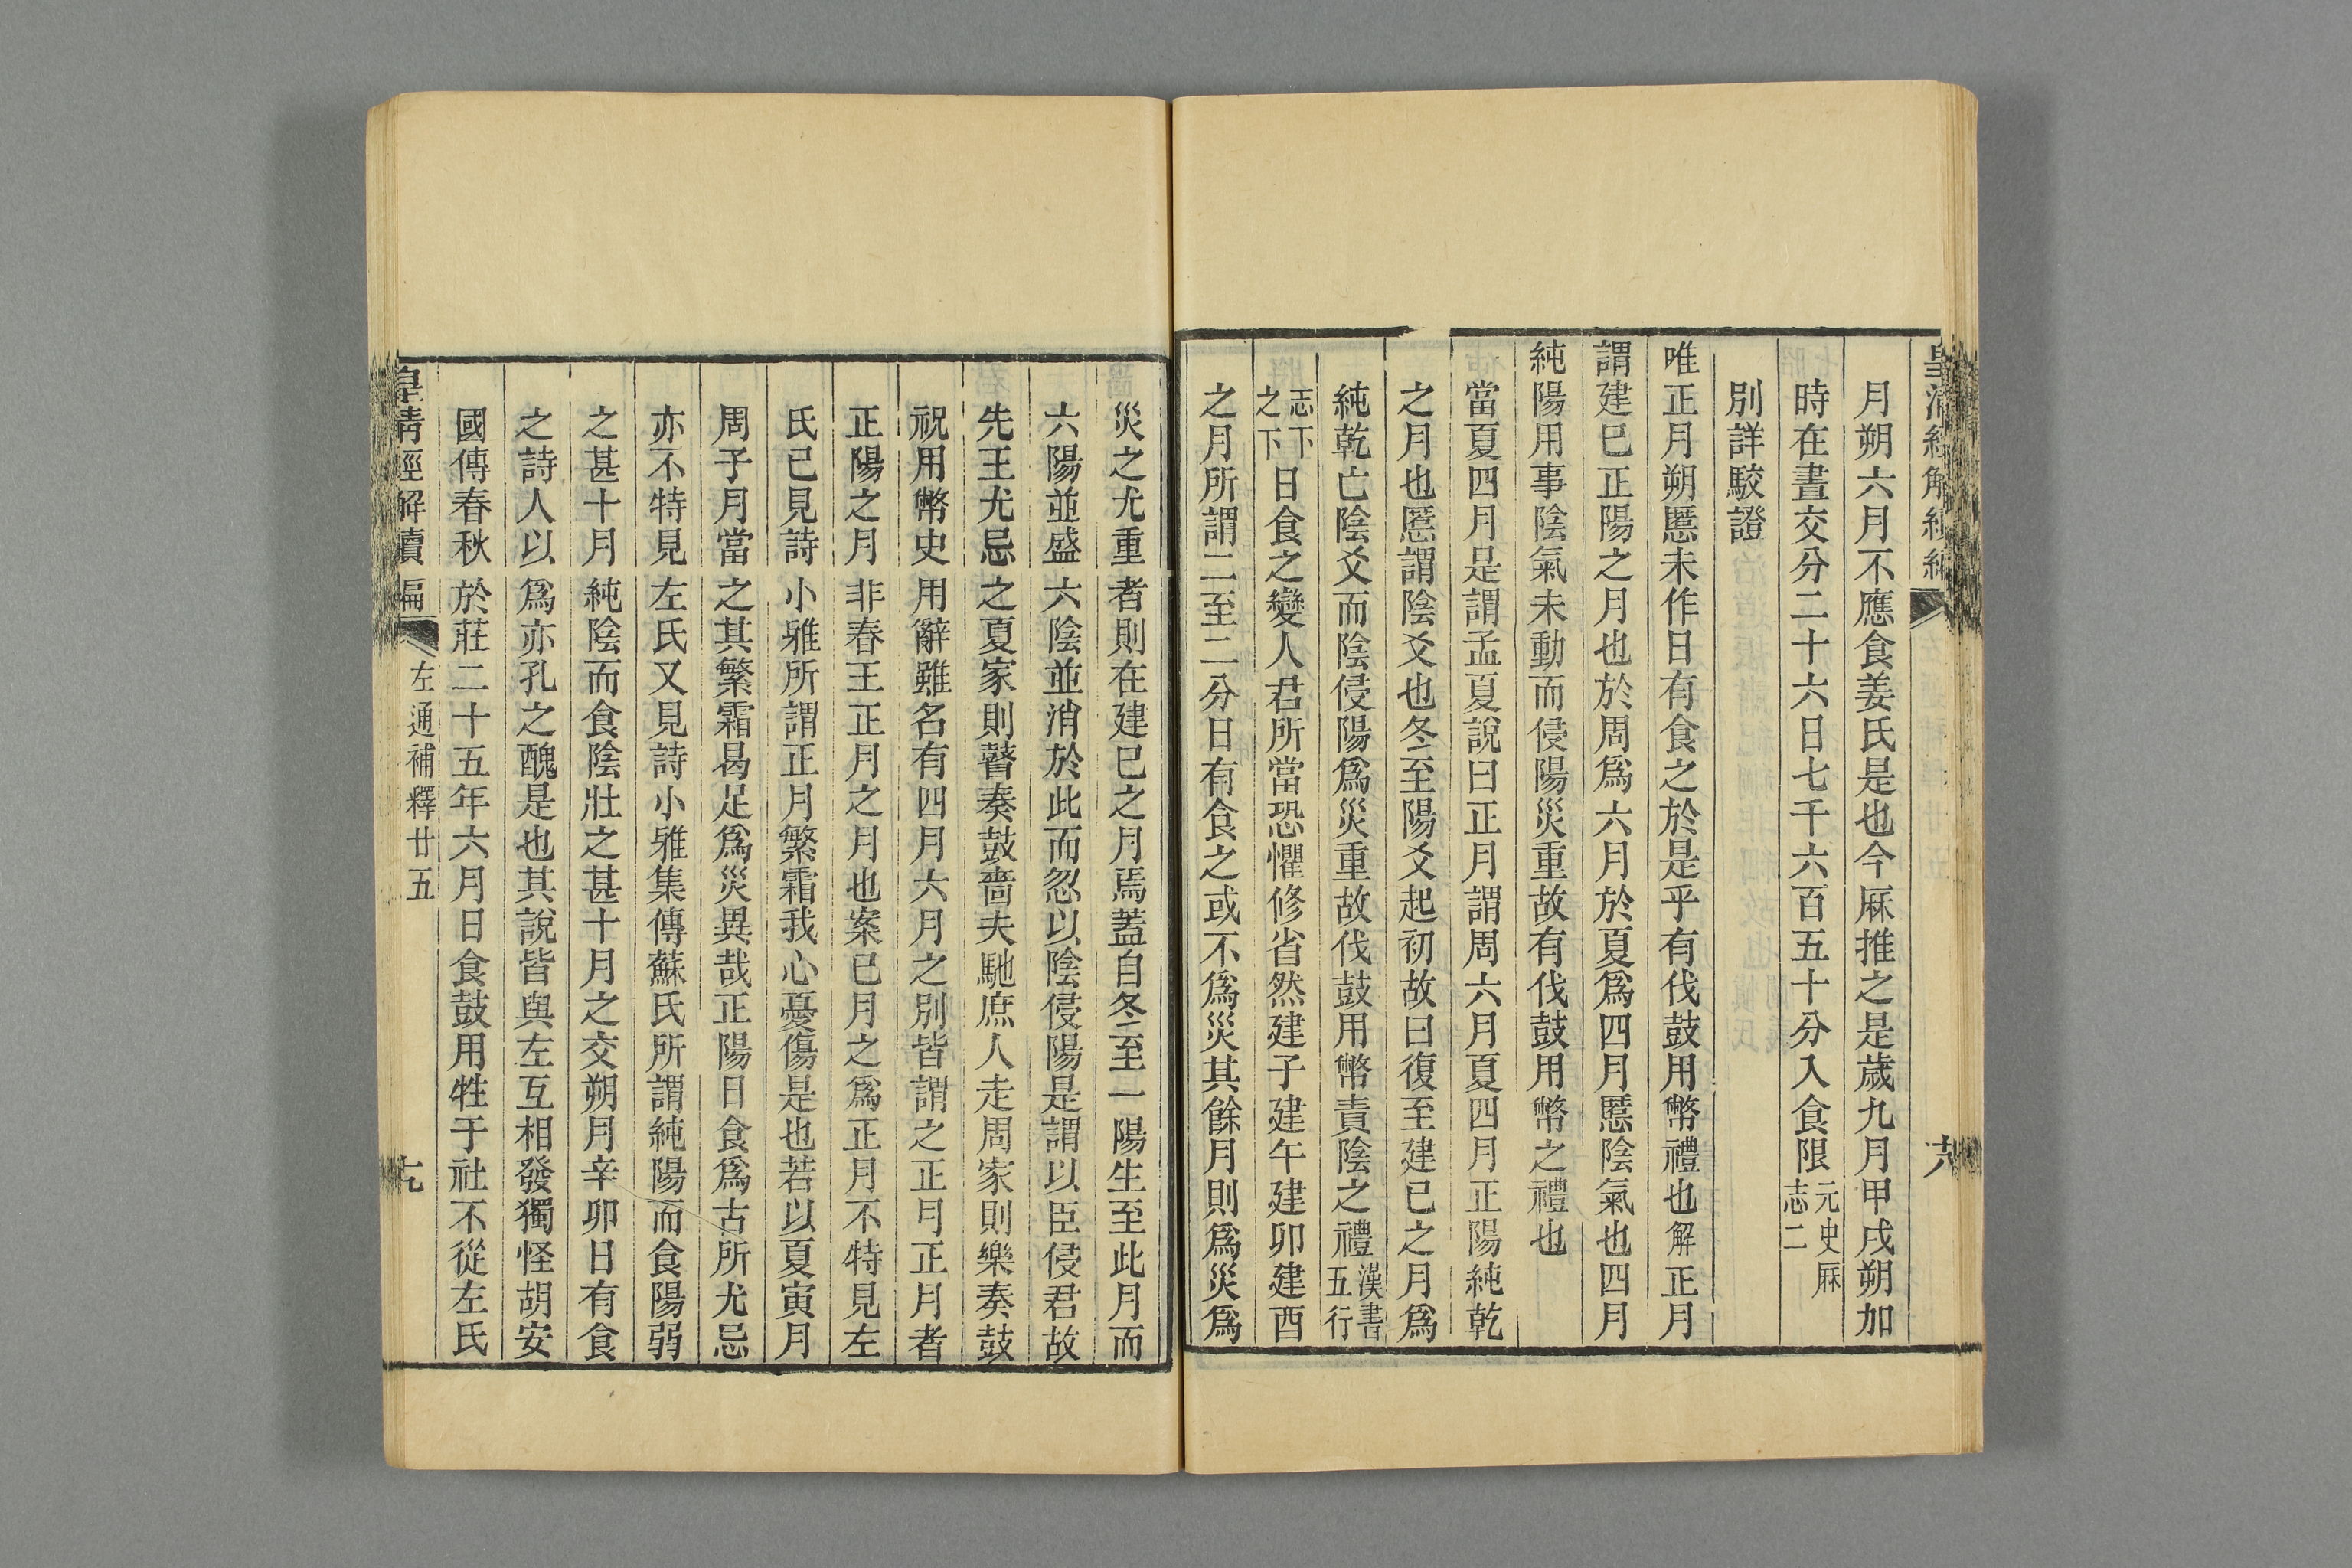 皇清經解續編
十八
月朔六月不應食姜氏是也今厤推之是歲九月甲戌朔加
時在晝交分二十六日七千六百五十分入食限元史厤志二
別詳駮證
唯正月朔慝未作日有食之於是乎有伐鼓用幣禮也解正月
謂建巳正陽之月也於周爲六月於夏爲四月慝陰氣也四月
純陽用事陰氣未動而侵陽災重故有伐鼓用幣之禮也
當夏四月是謂孟夏說曰正月謂周六月夏四月正陽純乾
之月也慝謂陰爻也冬至陽爻起初故曰復至建巳之月爲
純乾亡陰爻而陰侵陽爲災重故伐鼓用幣責陰之禮漢書五行
志下之下日食之變人君所當恐懼修省然建子建午建卯建酉
之月所謂二至二分日有食之或不爲災其餘月則爲災爲
災之尤重者則在建巳之月焉蓋自冬至一陽生至此月而
六陽並盛六陰並消於此而忽以陰侵陽是謂以臣侵君故
先王尤忌之夏家則瞽奏鼓嗇夫馳庶人走周家則樂奏鼓
祝用幣史用辭雖名有四月六月之別皆謂之正月正月者
正陽之月非春王正月之月也案巳月之爲正月不特見左
氏已見詩小雅所謂正月繁霜我心憂傷是也若以夏寅月
周子月當之其繁霜曷足爲災異哉正陽日食爲古所尤忌
亦不特見左氏又見詩小雅集傳蘇氏所謂純陽而食陽弱
之甚十月純陰而食陰壯之甚十月之交朔月辛卯日有食
之詩人以爲亦孔之醜是也其說皆與左互相發獨怪胡安
國傳春秋於莊二十五年六月日食鼓用牲于社不從左氏
皇清經解續編
左通補釋廿五
十九